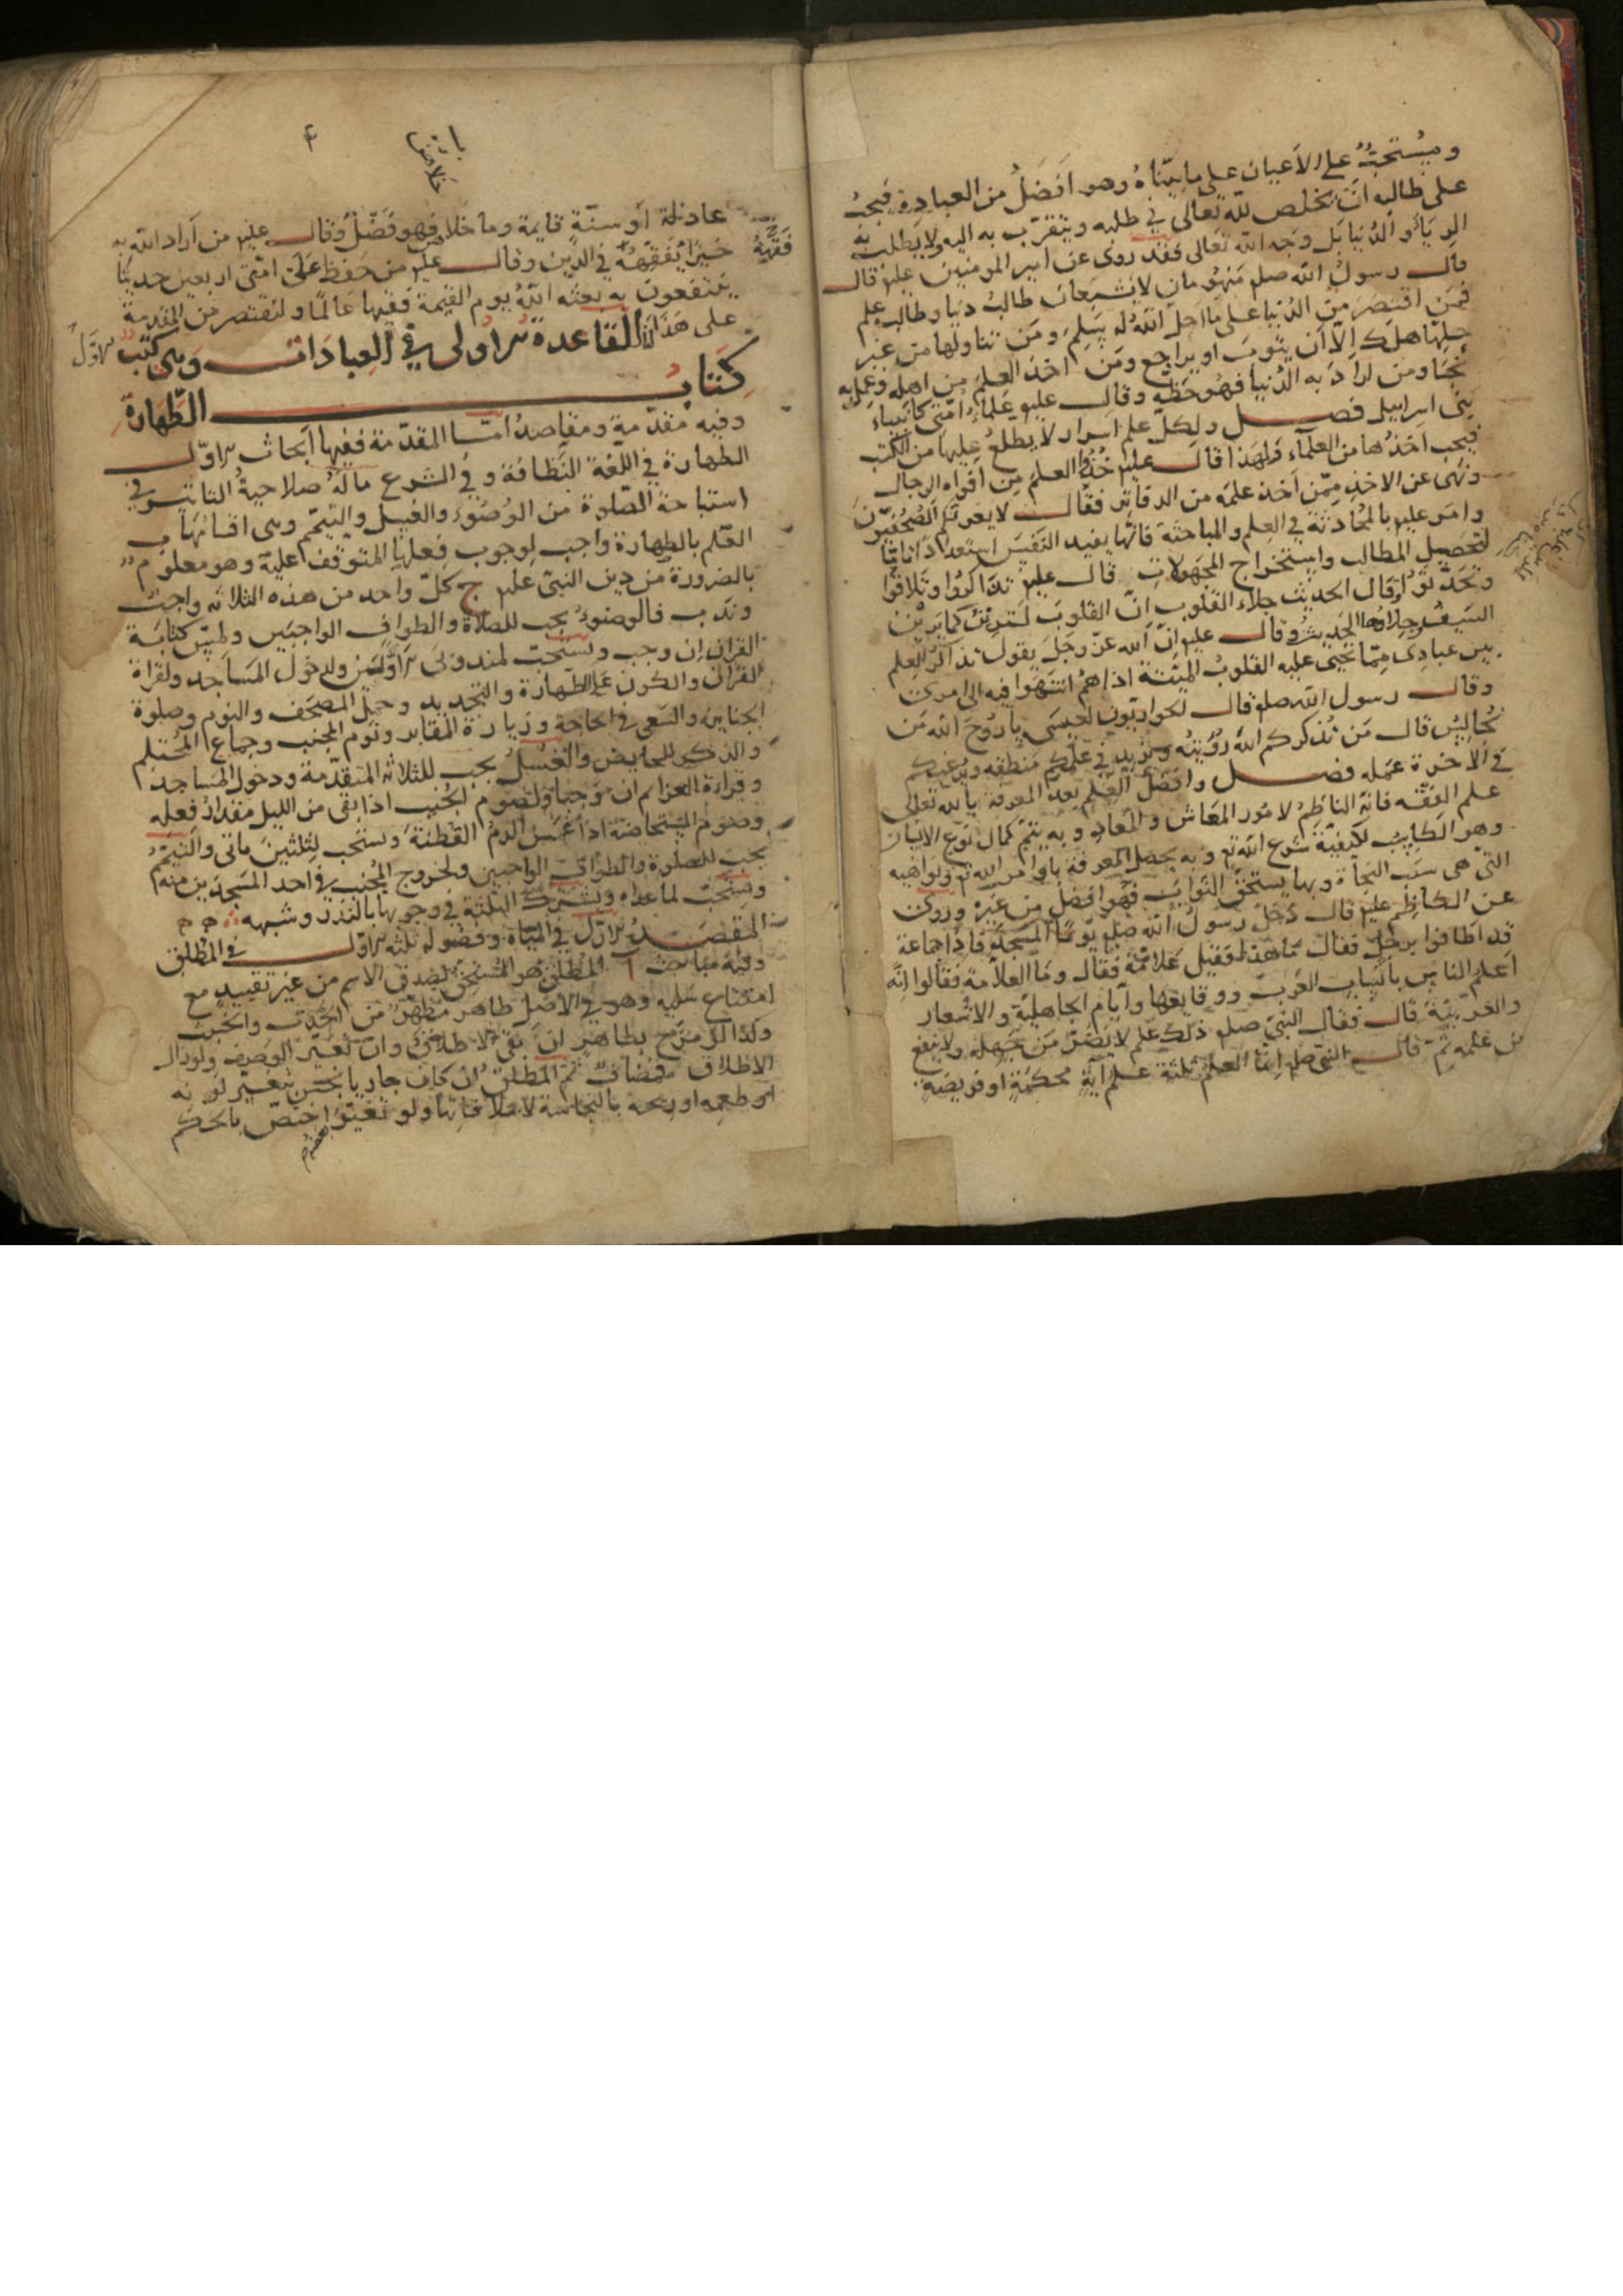 ويستحبّ على الاعيان على ما بيّناه وهو افضل من العبادة فيجب
على طالبه ان يخلص لله تعالى في طلبه ويتقرّب به اليه ولا يطلب به
الرياء والدنيا بل وجه الله تعالى فقد روى عن امير المومنين عليم قال
قال رسول الله صلم منهومان لا يشبعان طالب دنيا وطالب علم
فمن اقتصر من الدنيا على ما احلّ الله له سلم ومن تناولها من غير
حلّها هلك الّا ان يتوب او يراجع ومن اخذ العلم من اهله وعمل به
نجا ومن اراد به الدنيا فهو حظّه وقال عليم علماء امّتى كانبياء
بنى اسراييل فصل ولكلّ علم اسرار لا يطلع عليها من الكتب
فيجب اخذها من العلماء ولهذا قال عليم خذوا العلم من افواه الرجال
ونهى عن الاخذ ممّن اخذ علمه من الدفاتر فقال لا يغرنّكم الصحفيّون
وامر عليم بالمحادثة في العلم والمباحثة فانّها يفيد النفس استعدادا تامّا
لتحصيل المطالب واستخراج المجهولات قال عليم تذاكروا وتلاقوا
وتحدّثوا فان الحديث جلاء القلوب انّ القلوب لترين كما يرين
السيف وجلاوها الحديث وقال عليم انّ الله عزّ وجل يقول تذاكر العلم
بين عبادى ممّا تحيى عليه القلوب الميّتة اذا هم انتهوا فيه الى امرى
وقال رسول الله صلم قال الحواريّون لعيسى يا روح الله من
نجالس قال من يذكركم الله رؤيته ويزيد في علمكم منطقه ويرغبكم
في الاخرة عمله فصل وافضل العلم بعد المعرفة بالله تعالى
علم الفقه فانه الناظم لامور المعاش والمعاد وبه يتمّ كمال نوع الانسان
وهو الكاسب لكيفيّة شرع الله تع وبه يحصل المعرفة باوامر الله تع ونواهيه
التى هى سبب النجاة وبها يستحقّ الثواب فهو افضل من غيره وروى
عن الكاظم عليم قال دخل رسول الله صلم يوما المسجد فاذا جماعة
قد اطافوا برجل فقال ما هذا فقيل علامة فقال وما العلامة فقالوا انّه
اعلم الناس بانساب العرب ووقايعها وايام الجاهلية والاشعار
والعربيّة قال فقال النبيّ صلم ذلك علم لا يضرّ من جهله ولا ينفع
من علمه ثمّ قال النبي صلم انّما العلم ثلثة علم آية محكمة او فريضة
عادلة او سنّة قايمة وما خلاهنّ فهو فضل وقال عليم من اراد الله به
خيرا يفقّهه في الدين وقال عليم من حفظ على امّتى اربعين حديثا
ينتفعون به بعثه الله يوم القيمة فقيها عالما ولنقتصر من المقدمة
على هذا القاعدة الاولى في العبادات وهى كتب الاوّل
كتاب الطهارة
وفيه مقدّمة ومقاصد امّا المقدّمة ففيها ابحاث الاوّل
الطهارة في اللغة النظافة وفي الشرع ما له صلاحية التاثير في
استباحة الصلوة من الوضوء والغسل والتيمّم وهى اقسامها ب
العلم بالطهارة واجب لوجوب فعلها المتوقف عليه وهو معلوم
بالضرورة من دين النبيّ عليم ج كلّ واحد من هذه الثلاثه واجب
وندب فالوضوء يجب للصلاة والطواف الواجبين ولمس كتابة
القران ان وجب ويستحبّ لمندوبى الاوّلين ولدخول المساجد ولقراة
القران والكون على الطهارة والتجديد وحمل المصحف والنوم وصلوة
الجنايز والسعى في الحاجة وزيارة المقابر ونوم الجنب وجماع المحتلم
والذكر للحايض والغسل يجب للثلاثه المتقدّمة ودخول المساجد
وقراءة العزايم ان وجبا ولصوم الجنب اذا بقى من الليل مقدار فعله
وصوم المستحاضة اذا غمس الدم القطنة ويستحب لثلثين ماتى والتيمّم
يجب للصلوة والطواف الواجبين ولخروج المجنب في احد المسجدين منه
ويستحبّ لما عداه ويشترك الثلثة في وجوبها بالنذر وشبهه
المقصد الاوّل في المياه وفصوله ثلثه الاوّل في المطلق
وفيه مباحث ا المطلق هو المستحق لصدق الاسم من غير تقييد مع
امتناع سلبه وهو في الاصل طاهر مطهّر من الحدث والخبث
وكذا لو مزج بطاهر ان بقى الاطلاق وان تغيّر الوصف ولو زال
الاطلاق فمضاف ثم المطلق ان كان جاريا نجس بتغيّر لونه
او طعمه او ريحه بالنجاسة لا بملاقاتها ولو تغيّر بعضه اختصّ بالحكم